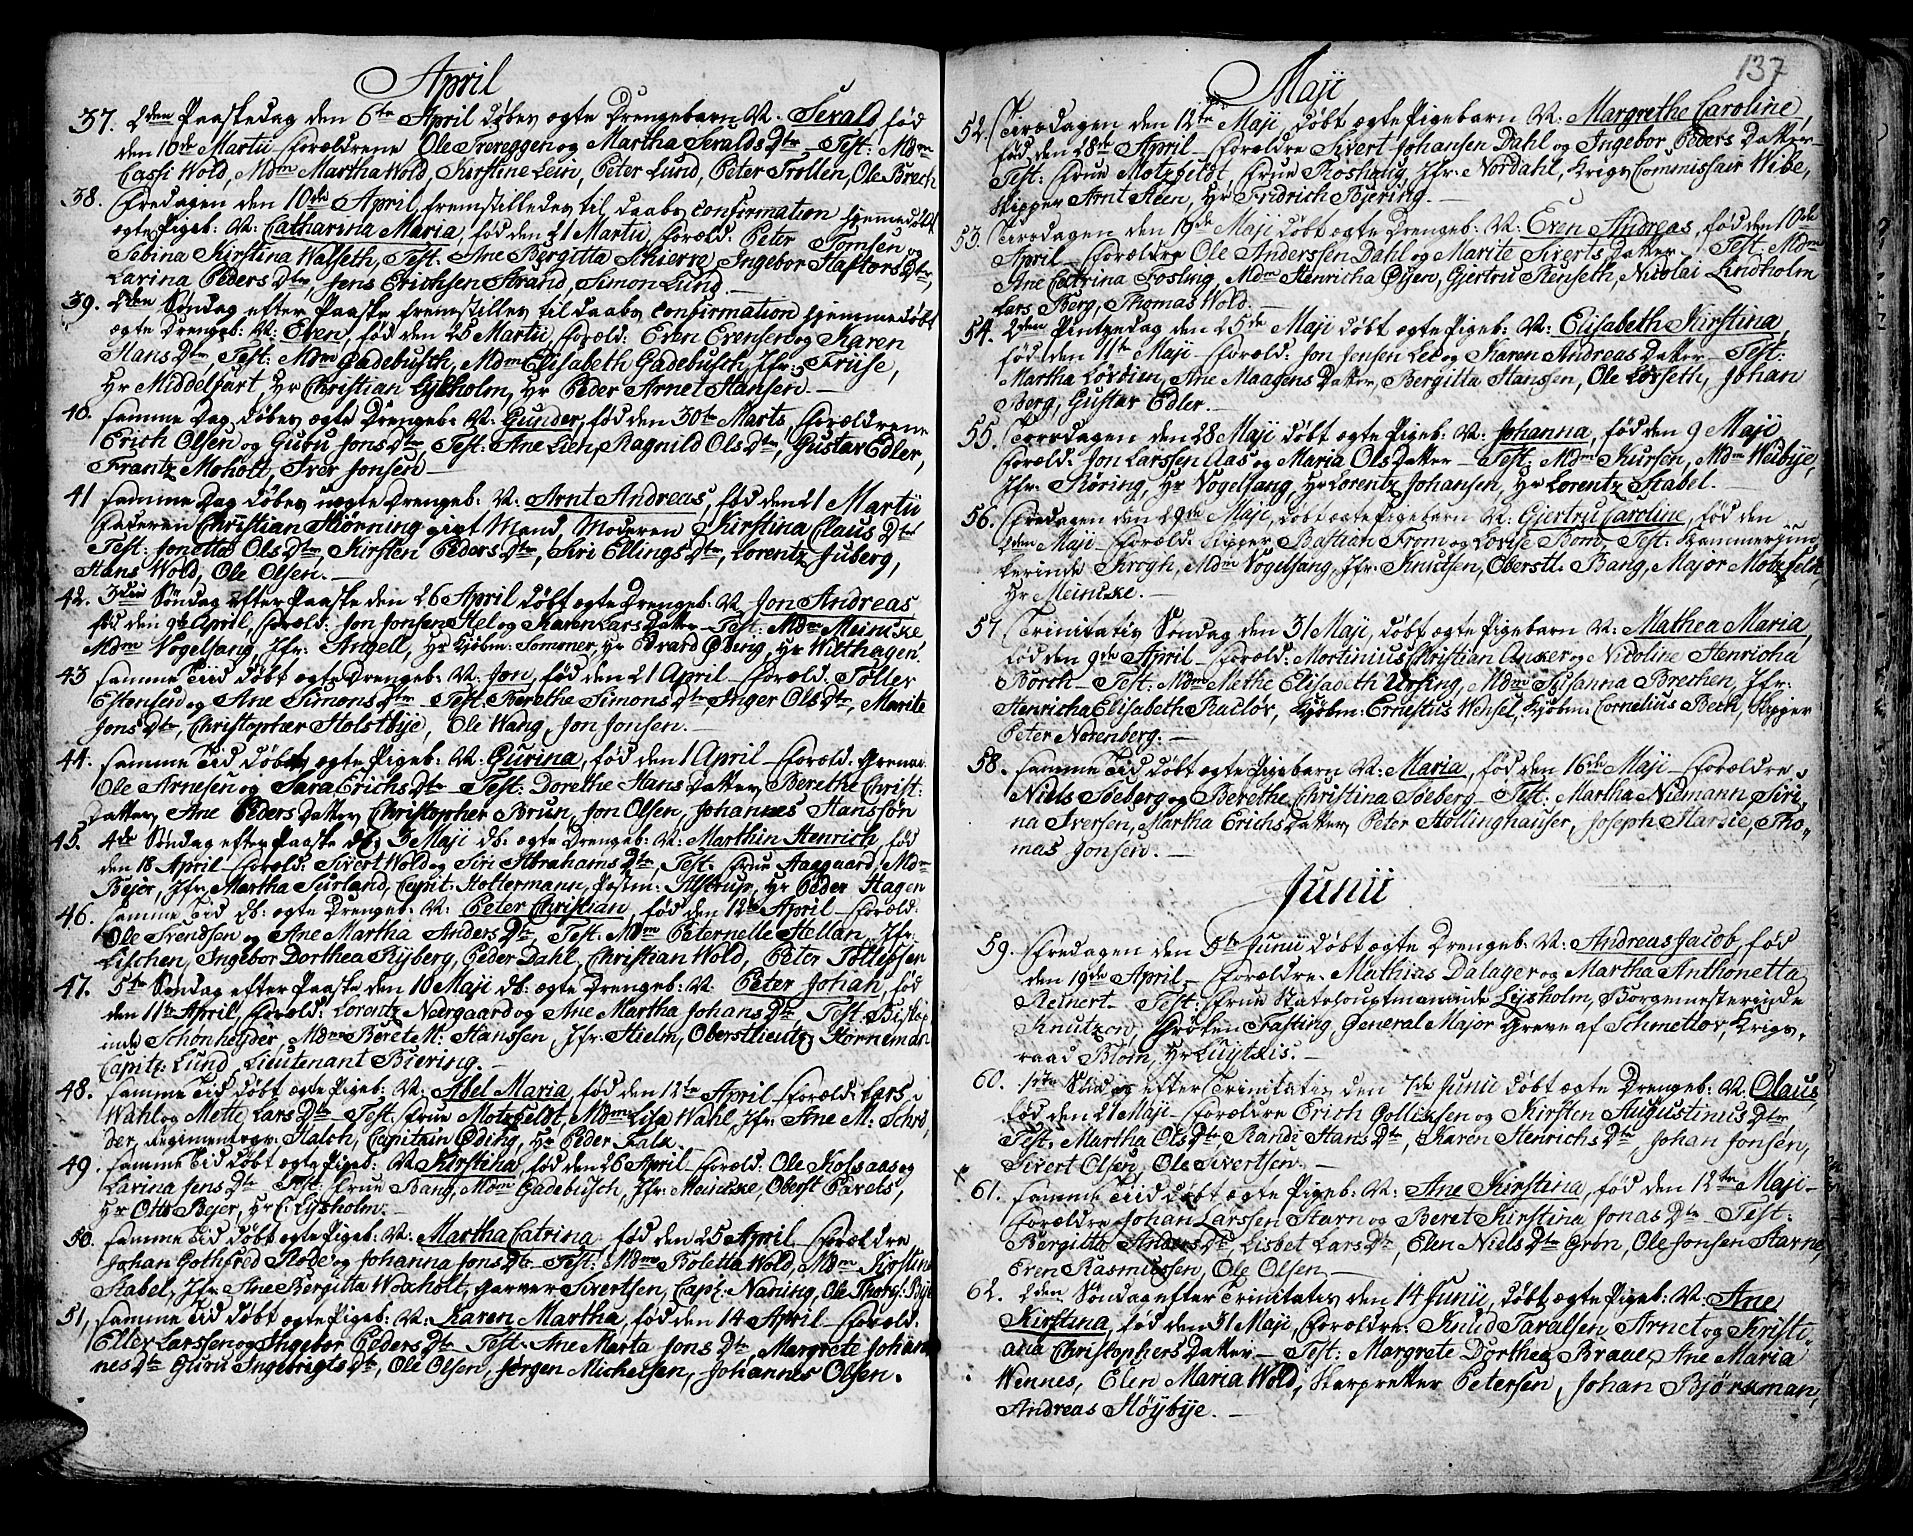 April
37. 2den Paaskedag den 6te April døbes ægte Drengebarn N: Serald, fød
den 10de Martii forældrene Ole Trereggen og Martha Seralds Dtr Test: Mdm
Cassi Wold, Mdm Martha Wold, Kirstine Lein, Peter Lund, Peter Trollen, Ole Brech
38. Fredagen den 10de April, fremstilledes til daabs confirmation hjemmedøbt
ægte Pigeb: N: Catharina Maria, fød den 21 Martii, foræld: Peter Tomsen og
Sebina Kirstina Walseth, Test: Ane Bergitta Schierre, Ingebor Haftors Dtr,
Larina Peders Dtr, Jens Erichsen Strand, Simon Lund.
39. 2den Søndag efter Paaske fremstilles til daabs confirmation hjemmedøbt
ægte Drengeb: N: Even, fød den 25 Martii, foræld: Even Evensen og Karen
Hans Dtr, Test: Mdm Gadebusch, Mdm Elisabeth Gadebusch, Jfr: Friise,
Hr Middelfart, Hr Christian Lysholm, Hr Peder Arnet Hansen.
40. samme Dag døbes ægte Drengeb: N: Gunder, fød den 30te Marts, forældrene
Erich Olsen og Guru Jons Dtr, Test: Ane Lien, Ragnild Ols Dtr, Gustav Edler,
Frantz Moholt, Iver Jonsen
41 samme Dag døbes uægte Drengeb: N: Arnt Andreas, fød den 21 Martii
Faderen Christian Hørning gift Mand, Moderen Kirstina Claus Dtr
Test: Jonetta Ols Dtr, Kirsten Peders Dtr, Siri Ellings Dtr, Lorentz Juberg,
Hans Wold, Ole Olsen.
42. 3die Søndag efter Paaske den 26 April døbt ægte Drengeb: N: Jon Andreas
fød den 9de April, foræld: Jon Jonsen Hel og Karen Lars Datter Test: Mdm Meincke
Mdm Vogelsang, Jfr: Angell, Hr Kjøbm: Sommer, Hr Edvard Øding, Hr Wilthagen
43 samme Tiid døbt ægte Drengeb: N: Jon, fød den 21 April foræld: Toller
Estensen og Ane Simons Dtr Test: Berethe Simons Dtr Inger Ols Dtr, Marite
Jons Dtr, Christopher Holstbye, Ole Wang, Jon Jonsen.
44. samme Tid døbt ægte Pigeb: N: Gurina, fød den 1 April foræld:
Ole Arnesen og Sara Erichs Dtr Test: Dorethe Hans Datter Berethe Christ:
Datter, Ane Peders Datter Christopher Brun, Jon Olsen, Johannes Hanssøn
45. 4de Søndag efter Paaske d: 3 Maji db: ægte Drengeb: N: Marthin Henrich, fød
den 18 April foræld: Sivert Wold og Siri Abrahams Dtr, Test: Frue Aagaard, Mdm
Bejer, Jfr Martha Surland, Capit: Holtermann, Postm: Ulstrup, Hr Peder Hagen
46. samme Tid db: ægte Drengeb: N: Peter Christian, fød den 12te April foræld:
Ole Svendsen og Ane Martha Anders Dtr, Test: Mdm Peternelle Stellan, Jfr:
Lischen, Ingebor Dorthea Ryberg, Peder Dahl, Christian Wold, Peter Tollefsen
47. 5te Søndag efter Paaske den 10 Maji db: ægte Drengeb: N: Peter Johan, fød
den 11te April, foræld: Lorentz Nærgaard og Ane Martha Johans Dtr Test: Bisko
inde Schønheyder, Mdm Beret M: Hanssen, Jfr: Hielm, Oberstlieut: Hornemann
Capit: Lund, Lieutenant Biering.
48. samme Tid døbt ægte Pigeb: N: Abel Maria, fød den 12te April foræld: Lars
Wahl og Mette Lars Dtr Test: Frue Motzfeldt, Mdm Lisa Wahl, Jfr: Ane M: Schrø
der, Regimentsqv: Halch, Capitain Øding, Hr Peder Falk.
49. samme Tid døbt ægte Pigeb: N: Kirstina, fød den 26 April foræld: Ole Kolsaas og
Larina Jens Dtr Test: Frue Bang, Mdm Gadebusch, Jfr: Meincke, Oberst Pavels,
Hr Otto Bejer, Hr C: Lysholm.
50. samme Tid døbt ægte Pigeb: N: Martha Catrina, fød den 25 April forældre
Johan Gothfred Rode og Johanna Jons Dtr Test: Mdm Boletta Wold, Mdm Kirstine
Stabel, Jfr Ane Bergitta Woxholt, Garver Sivertsen, Capt: Naning, Ole Thorgl: Bye
51, samme Tid døbt ægte Pigeb: N: Karen Martha, fød den 14 April foræld:
Ellev Larssen og Ingebor Peders Dtr Test: Ane Marta Jons Dtr, Margrete Johan
nes Dtr Gloru Ingebrigts Dtr, Ole Olsen, Jørgen Michelsen, Johannes Olsen.
Maji
137
52. Tirsdagen den 12te Maji døbt ægte Pigebarn N: Margrethe Caroline,
fød den 28de April forældre Sivert Johansen Dahl og Ingebor Peders Datter
Test: Frue Motzfeldt, Frue Roshaug, Jfr: Nordahl, Krigs Commissair Wibe,
Skipper Arnt Steen, Hr Fridrich Bjering.
53. Tirsdagen den 19de Maji døbt ægte Drengeb: N: Even Andreas, fød den 10de
April forældre Ole Anderssen Dahl og Marite Siverts Datter, Test: Mdm
Ane Catrina Fosling, Mdm Henricha Olsen, Gjertru Stenseth, Nicolai Lindholm
Lars Berg, Thomas Wold.
54. 2den Pintzedag den 25de Maji døbt ægte Pigeb: N: Elisabeth Kirstina,
fød den 11te Maji foræld: Jon Jonsen Lee og Karen Andreas Datter Test:
Martha Lørdien, Ane Maagens Datter, Bergitta Hanssen, Ole Lorseth, Johan
Berg, Gustav Edler.
55. Torsdagen den 28 Maji døbt ægte Pigeb: N: Johanna, fød den 9 Maji
foræld: Jon Larssen Aas og Maria Ols Datter Test: Mdm Kursen, Mdm Weibye,
Jfr: Røring, Hr Vogelsang, Hr Lorentz Johansen, Hr Lorentz Stabel.
56. Fredagen den 29de Maji, døbt ægte Pigebarn N: Gjertru Caroline, fød den
2den Maji foræld: Skipper Bastian From og Lovise Bom, Test: Kammerjun
kerinde Krogh, Mdm Vogelsang, Jfr: Knudsen, Oberstl: Bang, Major Motzfeldt
Hr Meincke.
57 Trinitatis Søndag den 31 Maji, døbt ægte Pigebarn N: Mathea Maria,
fød den 9de April forældre: Mortinius Christian Anker og Nicoline Henricha
Borch Test: Mdm Methe Elisabeth Ursing, Mdm Susanna Brechen, Jfr:
Henricha Elisabeth Raclov, Kjøbm: Ernestus Wensel, Kjøbm: Cornelius Bech, Skipper
Peter Norenberg.
58. samme Tid døbt ægte Pigebarn N: Maria, fød den 16de Maji forældre
Niels Søeberg og Berethe Christina Søeberg Test: Martha Niemann, Siri
na Iversen, Martha Erichs Datter, Peter Hollinghauser, Joseph Harsie, Tho
mas Jonsen.
Junii
59. Fredagen den 5te Junii døbt ægte Drengeb: N: Andreas Jacob, fød
den 19de April, forældre: Mathias Dalager og Martha Anthonetta
Reinert Test: Frue Statshouptmaninde Lysholm, Borgemesterinde
Knutzon, Frøken Fasting, General Major Greve af Schmettov, Krigs
raad Blom, Hr Luytkis.
60. 1ste Søndag efter Trinitatis den 7de Junii døbt ægte Drengeb: N: Olaus,
fød den 21 Maji forældre Erich Gollissen og Kirsten Augustinus Dtr
Test. Martha Ols Dtr Randi Hans Dtr, Karen Henrichs Dtr Johan Jonsen,
Sivert Olsen, Ole Sivertsen.
61. samme Tiid døbt ægte Pigeb: N: Ane Kirstina, fød den 12te Maji
forældre Johan Larssen Starn og Beret Kirstina Jonas Dtr Test:
Bergitta Anders Dtr, Lisbet Lars Dtr, Elen Niels Dtr Grøn, Ole Jonsen Starne,
Even Rasmussen, Ole Olsen
62. 2den Søndag efter Trinitatis den 14 Junii, døbt ægte Pigeb: N: Ane
Kirstina, fød den 31 Maji, forældre: Knud Taralsen Arnet og Kristi
ana Christophers Datter Test: Margrete Dorthea Braue, Ane Maria
Wennes, Elen Maria Wold, Skarpretter Petersen, Johan Bjørkman,
Andreas Høybye.